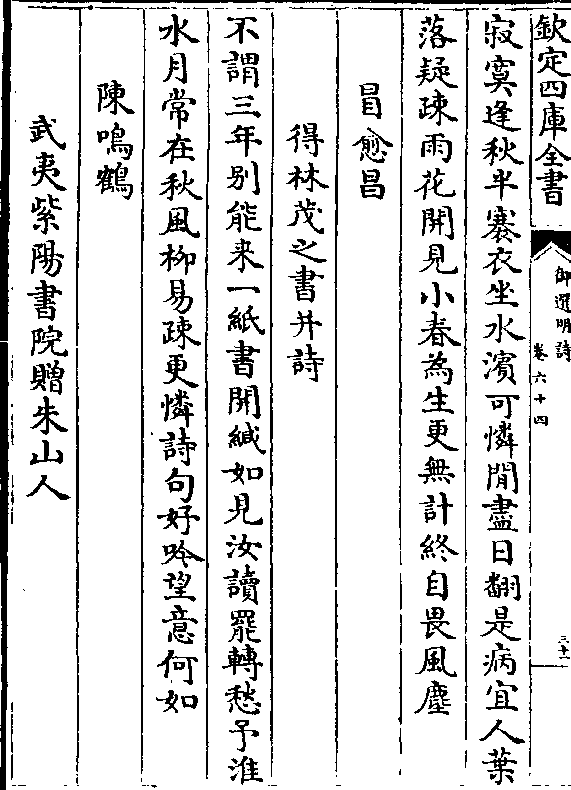 欽定四庫全書
御選明詩
卷六十四
三十一
寂寞逢秋半褰衣坐水濱可憐閒盡日翻是病宜人葉
落疑疎雨花開見小春為生更無計終自畏風塵
冒愈昌
得林茂之書并詩
不謂三年别能来一紙書開緘如見汝讀罷轉愁予淮
水月常在秋風柳易疎更憐詩句好吟望意何如
陳鳴鶴
武夷紫陽書院贈朱山人